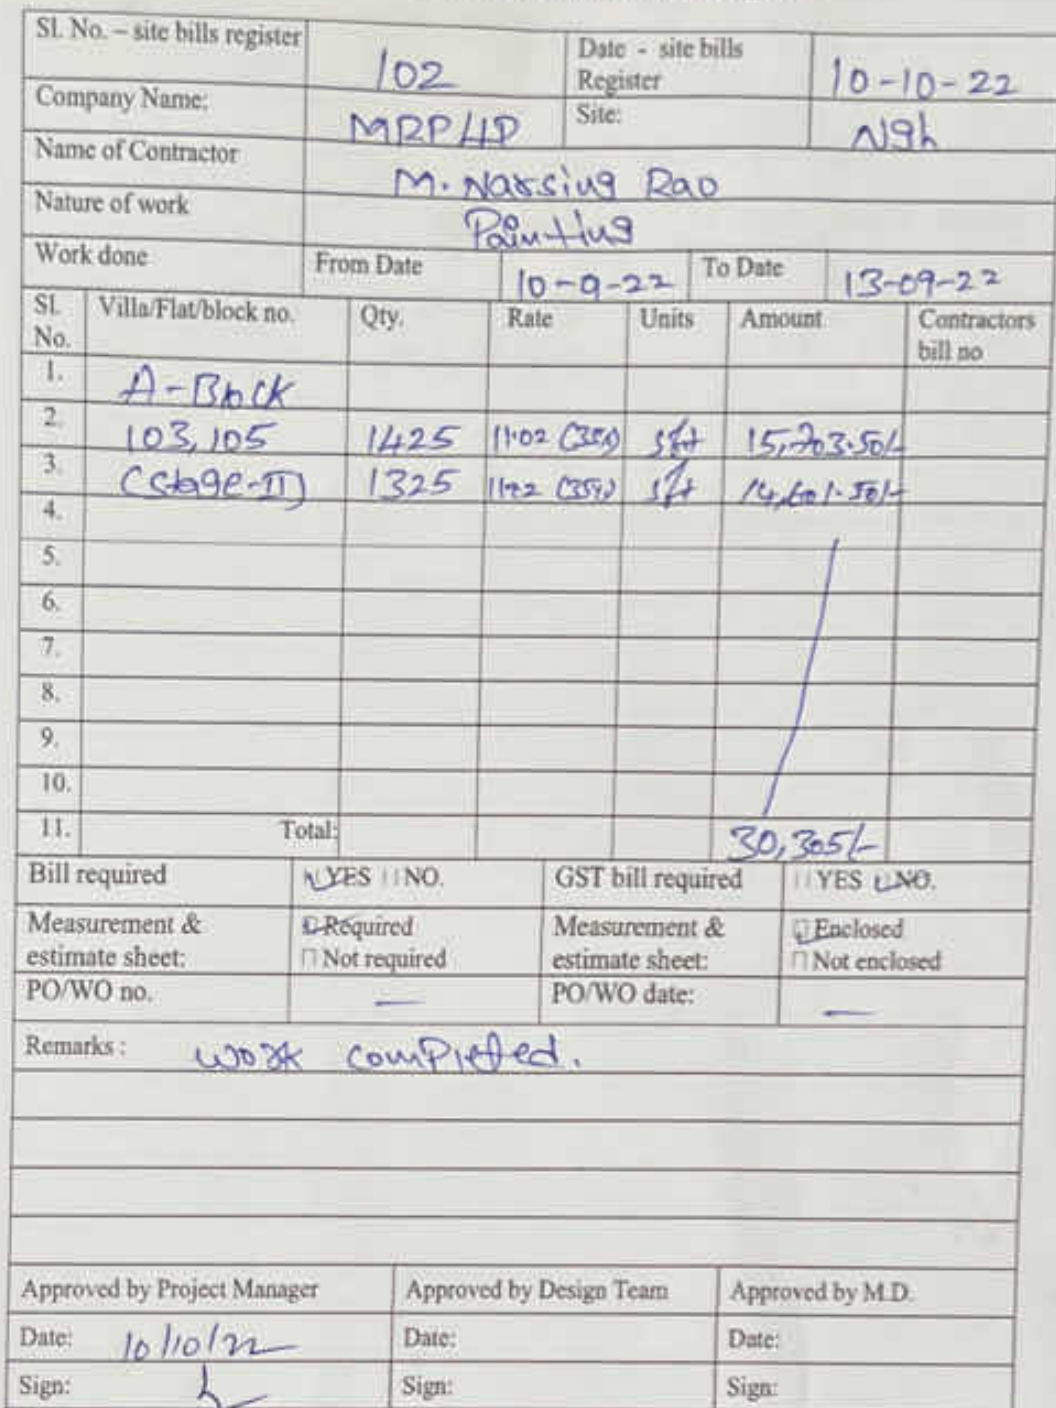 Sl. No. – site bills register 102 Date - site bills Register 10-10-22
Company Name: MRPLLP Site: Ngh
Name of Contractor M. Narsing Rao
Nature of work Painting
Work done From Date 10-9-22 To Date 13-09-22
Sl. No. Villa/Flat/block no. Qty. Rate Units Amount Contractors bill no
1. A-Block
2. 103,105 1425 11.02 (35%) sft 15,703.50/-
3. (Stage-II) 1325 11.02 (35%) sft 14,601.50/-
4.
5.
6.
7.
8.
9.
10.
11. Total: 30,305/-
Bill required YES NO. GST bill required YES NO.
Measurement & estimate sheet: Required Not required Measurement & estimate sheet: Enclosed Not enclosed
PO/WO no. — PO/WO date: —
Remarks : work completed.
Approved by Project Manager Approved by Design Team Approved by M.D.
Date: 10/10/22 Date: Date:
Sign: Sign: Sign: